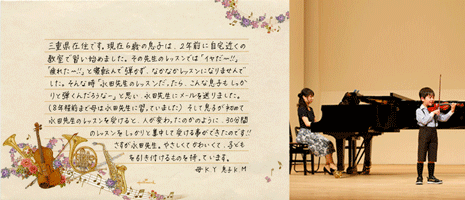 三重県在住です。現在6歳の息子は、2年前に自宅近くの
教室で習い始めました。その先生のレッスンでは「イヤだー!!」
「疲れたー!!」と寝転んで弾かず、なかなかレッスンになりませんで
した。そんな時「永田先生のレッスンだったら、こんな息子もしっか
りと弾くんだろうなー」と思い、永田先生にメールを送りました。
(8年程前まで母は永田先生に習っていました) そして息子が初めて
永田先生のレッスンを受けると、人が変わったかのように、30分間
のレッスンをしっかりと集中して受ける事ができたのです!!
さすが永田先生。やさしくてかわいくて、子ども
を引き付けるものを持っています。
母 K.Y 息子 K.M